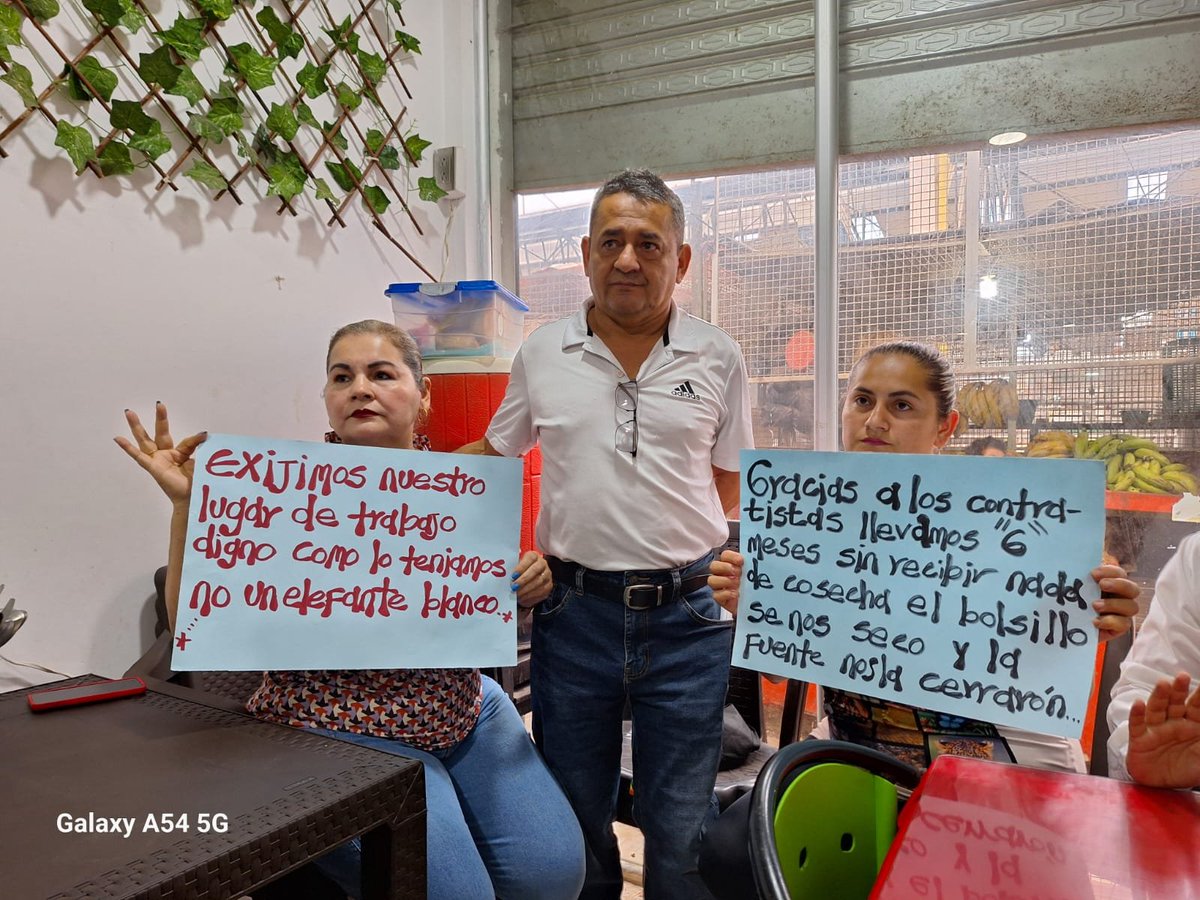 Exijimos nuestro
lugar de trabajo
digno como lo teniamos
no un elefante blanco..
Gracias a los contra-
tistas llevamos "6"
meses sin recibir nada
de cosecha el bolsillo
se nos seco y la
fuente nos la cerrarón...
adidas
Galaxy A54 5G